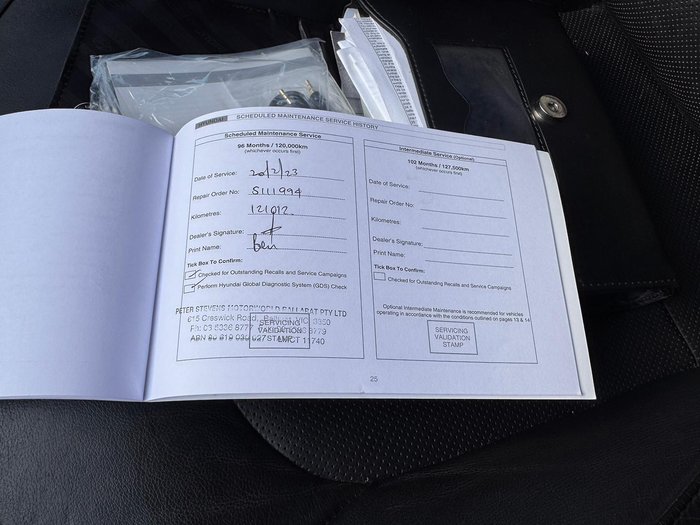 HYUNDAI SCHEDULED MAINTENANCE SERVICE HISTORY
Scheduled Maintenance Service
96 Months / 120,000km
(whichever occurs first)
Date of Service: 20/2/23
Repair Order No: S111994
Kilometres: 121012.
Dealer's Signature:
Print Name: Ben
Tick Box To Confirm:
Checked for Outstanding Recalls and Service Campaigns
Perform Hyundai Global Diagnostic System (GDS) Check
PETER STEVENS MOTORWORLD BALLARAT PTY LTD
615 Creswick Road, VIC 3350
Ph: 03 5336 8777
ABN LMCT 11740
SERVICING
VALIDATION
STAMP
Intermediate Service (Optional)
102 Months / 127,500km
(whichever occurs first)
Date of Service:
Repair Order No:
Kilometres:
Dealer's Signature:
Print Name:
Tick Box To Confirm:
Checked for Outstanding Recalls and Service Campaigns
Optional Intermediate Maintenance is recommended for vehicles
operating in accordance with the conditions outlined on pages 13 & 14
SERVICING
VALIDATION
STAMP
25